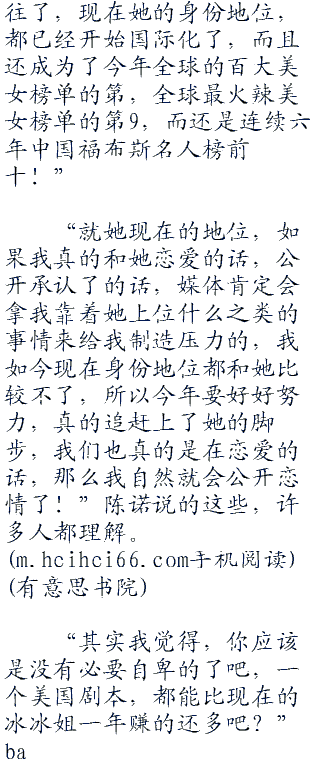 往了，现在她的身份地位，
都已经开始国际化了，而且
还成为了今年全球的百大美
女榜单的第，全球最火辣美
女榜单的第9，而还是连续六
年中国福布斯名人榜前
十！”
“就她现在的地位，如
果我真的和她恋爱的话，公
开承认了的话，媒体肯定会
拿我靠着她上位什么之类的
事情来给我制造压力的，我
如今现在身份地位都和她比
较不了，所以今年要好好努
力，真的追赶上了她的脚
步，我们也真的是在恋爱的
话，那么我自然就会公开恋
情了！”陈诺说的这些，许
多人都理解。
(m.hcihci66.com手机阅读)
(有意思书院)
“其实我觉得，你应该
是没有必要自卑的了吧，一
个美国剧本，都能比现在的
冰冰姐一年赚的还多吧？”
ba